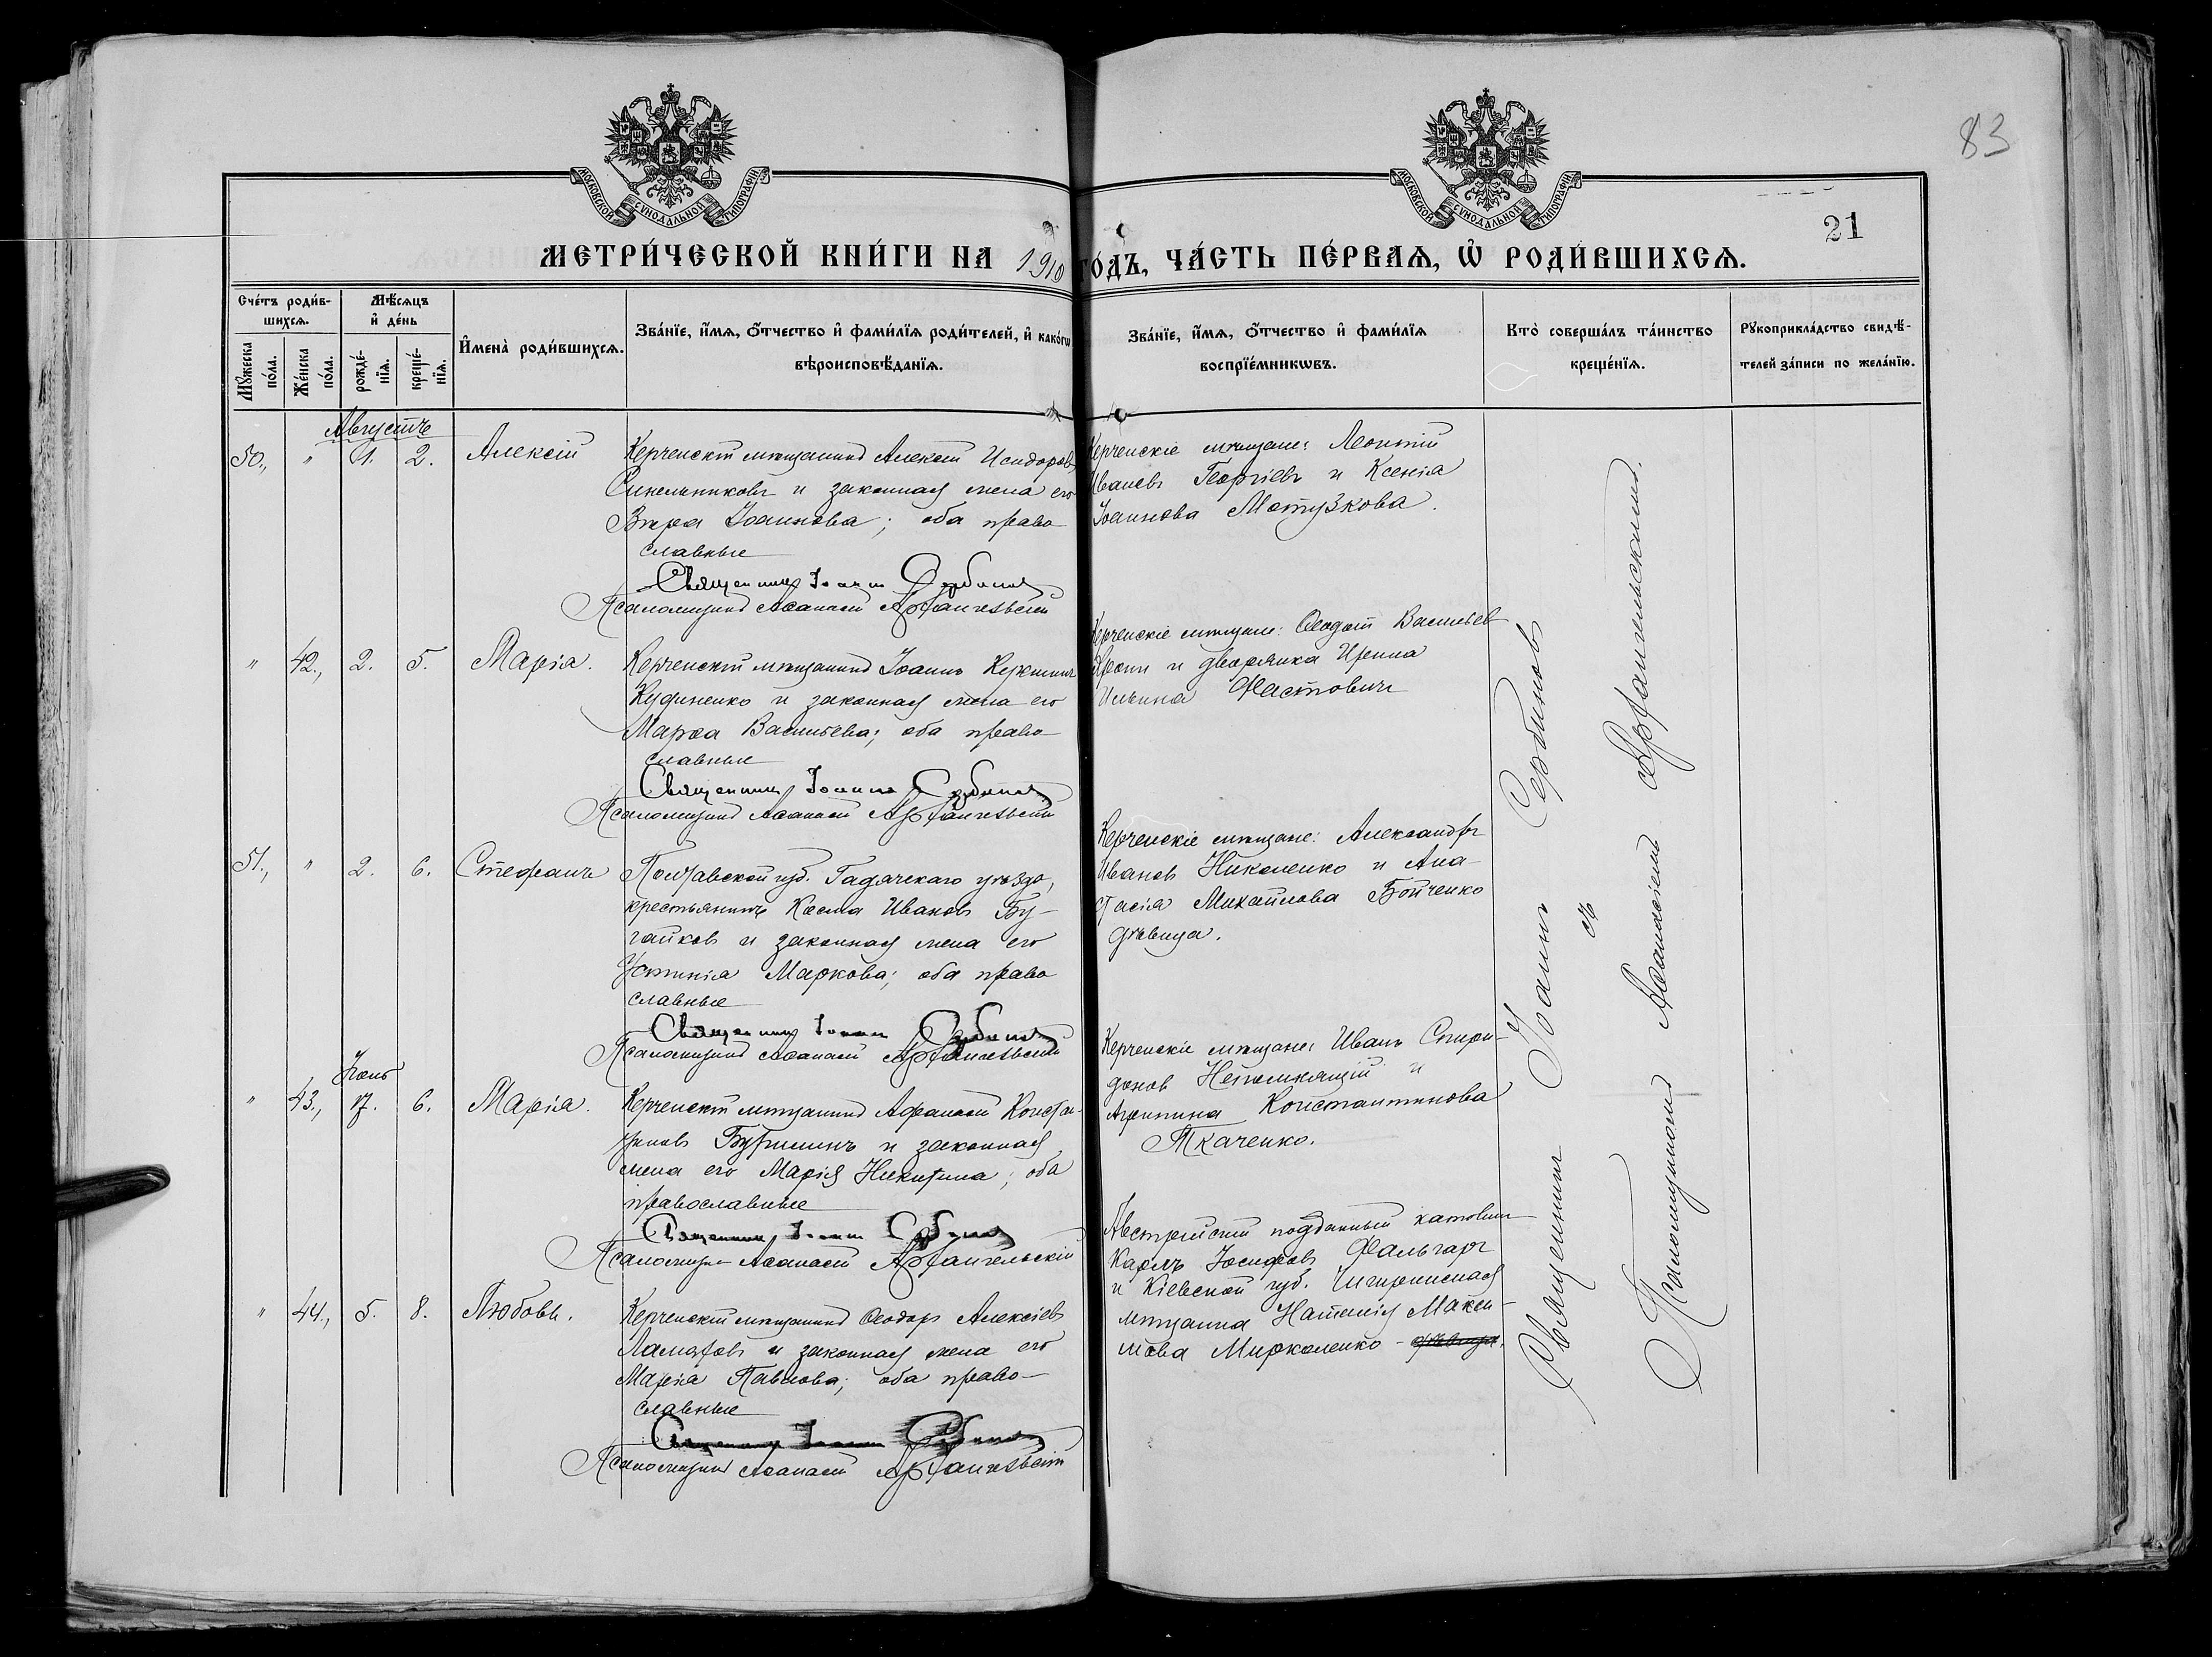 83
21
МОСКОВСКОЙ СѴНОДАЛЬНОЙ ТИПОГРАФІИ
МОСКОВСКОЙ СѴНОДАЛЬНОЙ ТИПОГРАФІИ
МЕТРИ́ЧЕСКОЙ КНИ́ГИ НА 1910 ГО́ДЪ, ЧА́СТЬ ПЕ́РВАЯ, Ѡ҆ РОДИ́ВШИХСЯ.
Сче́тъ роди́в-
шихся.
Мꙋжеска по́ла.
Же́нска по́ла.
Мѣ́сяцъ
и҆ де́нь
рожде́-
нїя.
креще́-
нїя.
И҆мена̀ роди́вшихся.
Зва́нїе, и҆́мя, ѻ҆́тчество и҆ фами́лїя роди́телей, и҆ како́гѡ
вѣроисповѣ́данїя.
Зва́нїе, и҆́мя, ѻ҆́тчество и҆ фами́лїя
воспрїе́мникѡвъ.
Кто̀ соверша́лъ та́инство
креще́нїя.
Рꙋкоприкла́дство свидѣ́-
телей за́писи по жела́нїю.
Августъ
50., " 1. 2. Алексій
Керченскій мѣщанинъ Алексій Исидоровъ
Синельниковъ и законная жена его
Вѣра Іоаннова; оба право-
славные
Священникъ Іоаннъ Сербиновъ
Псаломщикъ Аѳанасій Архангельскій
Керченскіе мѣщане: Леонтій
Ивановъ Георгіевъ и Ксенія
Іоаннова Мотузкова.
" 42., 2. 5. Марія.
Керченскій мѣщанинъ Іоаннъ
Кудиненко и законная жена его
Марѳа Васильева; оба право-
славные
Священникъ Іоаннъ Сербиновъ
Псаломщикъ Аѳанасій Архангельскій
Керченскіе мѣщане: Ѳеодотъ Васильевъ
и дворянка Ирина
Ильина Фастовичъ
51., " 2. 6. Стефанъ
Полтавской губ. Гадячскаго уѣзда,
крестьянинъ Косма Ивановъ Бу-
гайковъ и законная жена его
Устинія Маркова; оба право
славные
Священникъ Іоаннъ Сербиновъ
Псаломщикъ Аѳанасій Архангельскій
Керченскіе мѣщане: Александръ
Ивановъ Николенко и Ана-
стасія Михайлова Бойченко
дѣвица.
" 43., 17. 6. Марія.
Керченскій мѣщанинъ Афанасій Констан-
тиновъ и законная
жена его Марія Никитина; оба
православные
Священникъ Іоаннъ Сербиновъ
Псаломщикъ Аѳанасій Архангельскій
Керченскіе мѣщане: Иванъ Спири-
доновъ Непомнящій и
Агрипина Константинова
Ткаченко.
" 44., 5. 8. Любовь.
Керченскій мѣщанинъ Ѳеодоръ Алексіевъ
и законная жена его
Марія Павлова; оба право-
славные
Священникъ Іоаннъ Сербиновъ
Псаломщикъ Аѳанасій Архангельскій
Австрійскій подданный католикъ
Карлъ Іосифовъ
и Кіевской губ.
мѣщанка Наталія Макси-
мова Мирколенко - дѣвица.
Священникъ Іоаннъ Сербиновъ
съ
Псаломщикомъ Аѳанасіемъ Архангельскимъ.